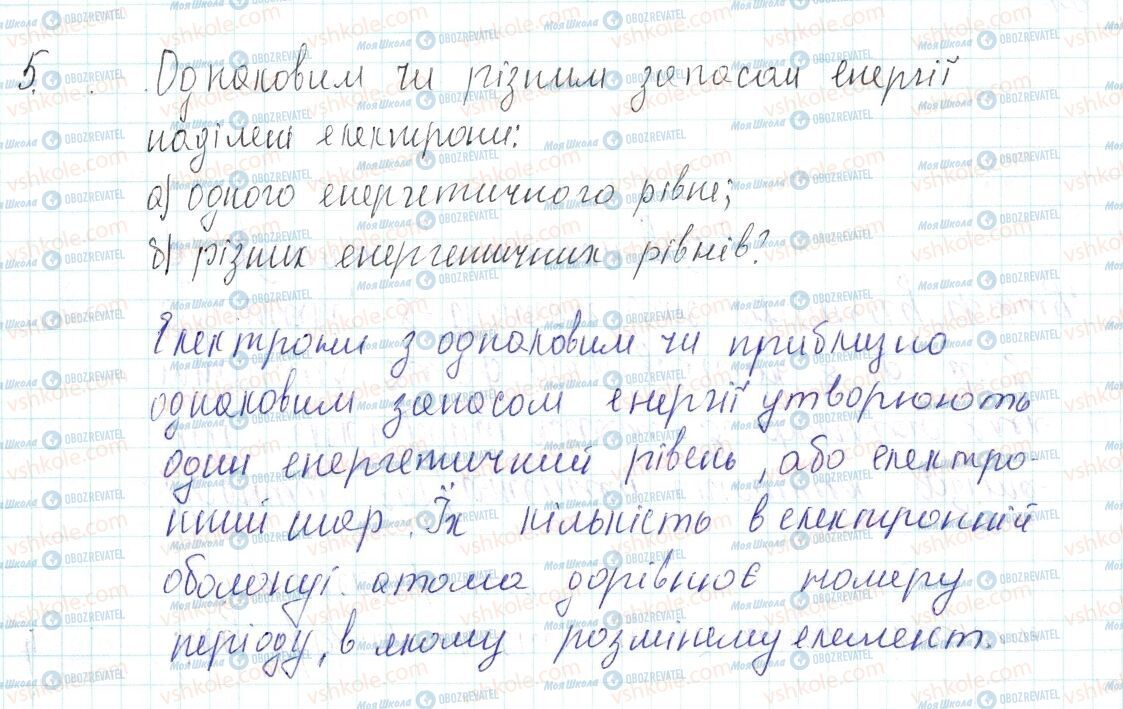 5. Однаковим чи різним запасом енергії
наділені електрони:
а) одного енергетичного рівне;
б) різних енергетичних рівнів?
Електрони з однаковим чи приблизно
однаковим запасом енергії утворюють
один енергетичний рівень, або електро-
нний шар. Їх кількість в електронній
оболонці атома дорівнює номеру
періоду, в якому розмінему елемент.